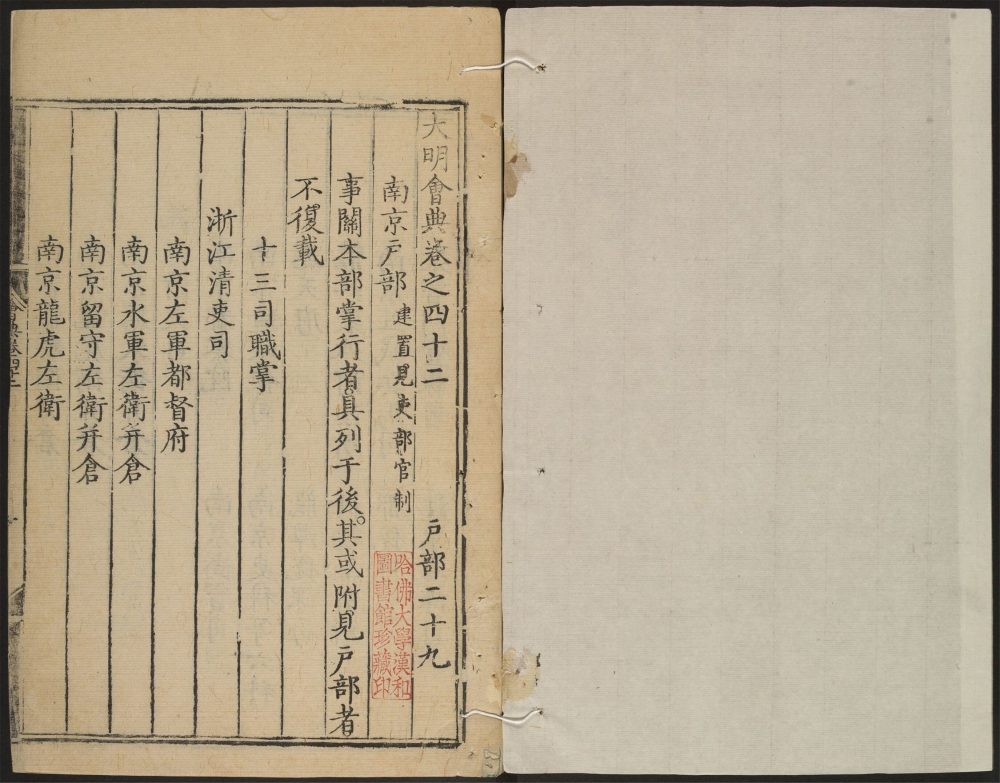 大明會典卷之四十二　戶部二十九
南京戶部 建置見吏部官制
事關本部掌行者具列于後。其或附見戶部者
不復載
十三司職掌
浙江清吏司
南京左軍都督府
南京水軍左衛并倉
南京留守左衛并倉
南京龍虎左衛
會典卷四十二
哈佛大學漢和
圖書館珍藏印